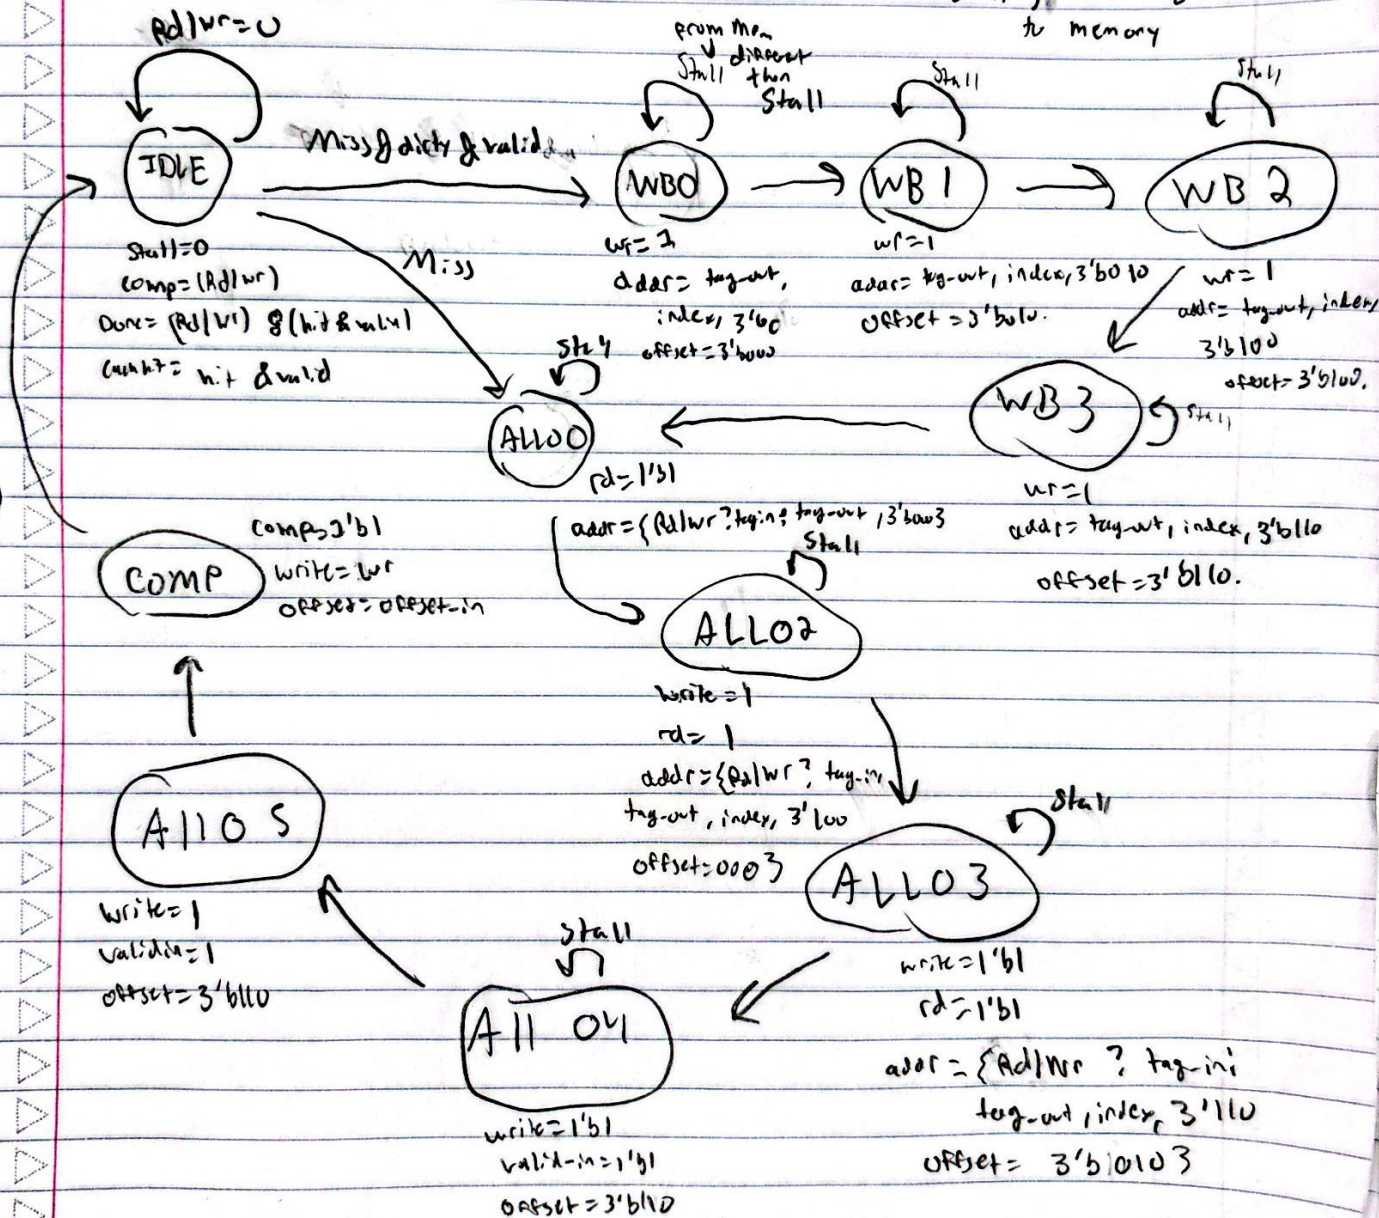 to memory
Rd/wr=0
from mem
Stall different
than
Stall
Stall
Stall
IDLE
Miss & dirty & valid
WB0
WB1
WB2
Stall=0
comp=(Rd/wr)
Done=(Rd/Wr) &(hit & valid)
hit & valid
Miss
wr=1
addr= tag-out,
index, 3'b0
offset=3'b000
wr=1
addr= tag-out, index, 3'b010
offset=3'b010.
wr=1
addr= tag-out, index,
3'b100
offset=3'b100.
Stall
ALLO0
rd=1'b1
addr={Rd/wr?tagin: tag-out,3'b000}
WB3
Stall
wr=1
addr= tag-out, index, 3'b110
offset=3'b110.
COMP
comp=1'b1
write=wr
offset=offset-in
Stall
ALLO2
write=1
rd= 1
addr={Rd/Wr? tag-in,
tag-out, index, 3'100
offset=000}
Stall
ALLO3
write=1'b1
rd=1'b1
addr={Rd/Wr ? tag-in:
tag-out, index, 3'110
offset= 3'b010}
Stall
All O4
write=1'b1
valid-in=1'b1
offset=3'b110
AllO5
write=1
validin=1
offset=3'b110